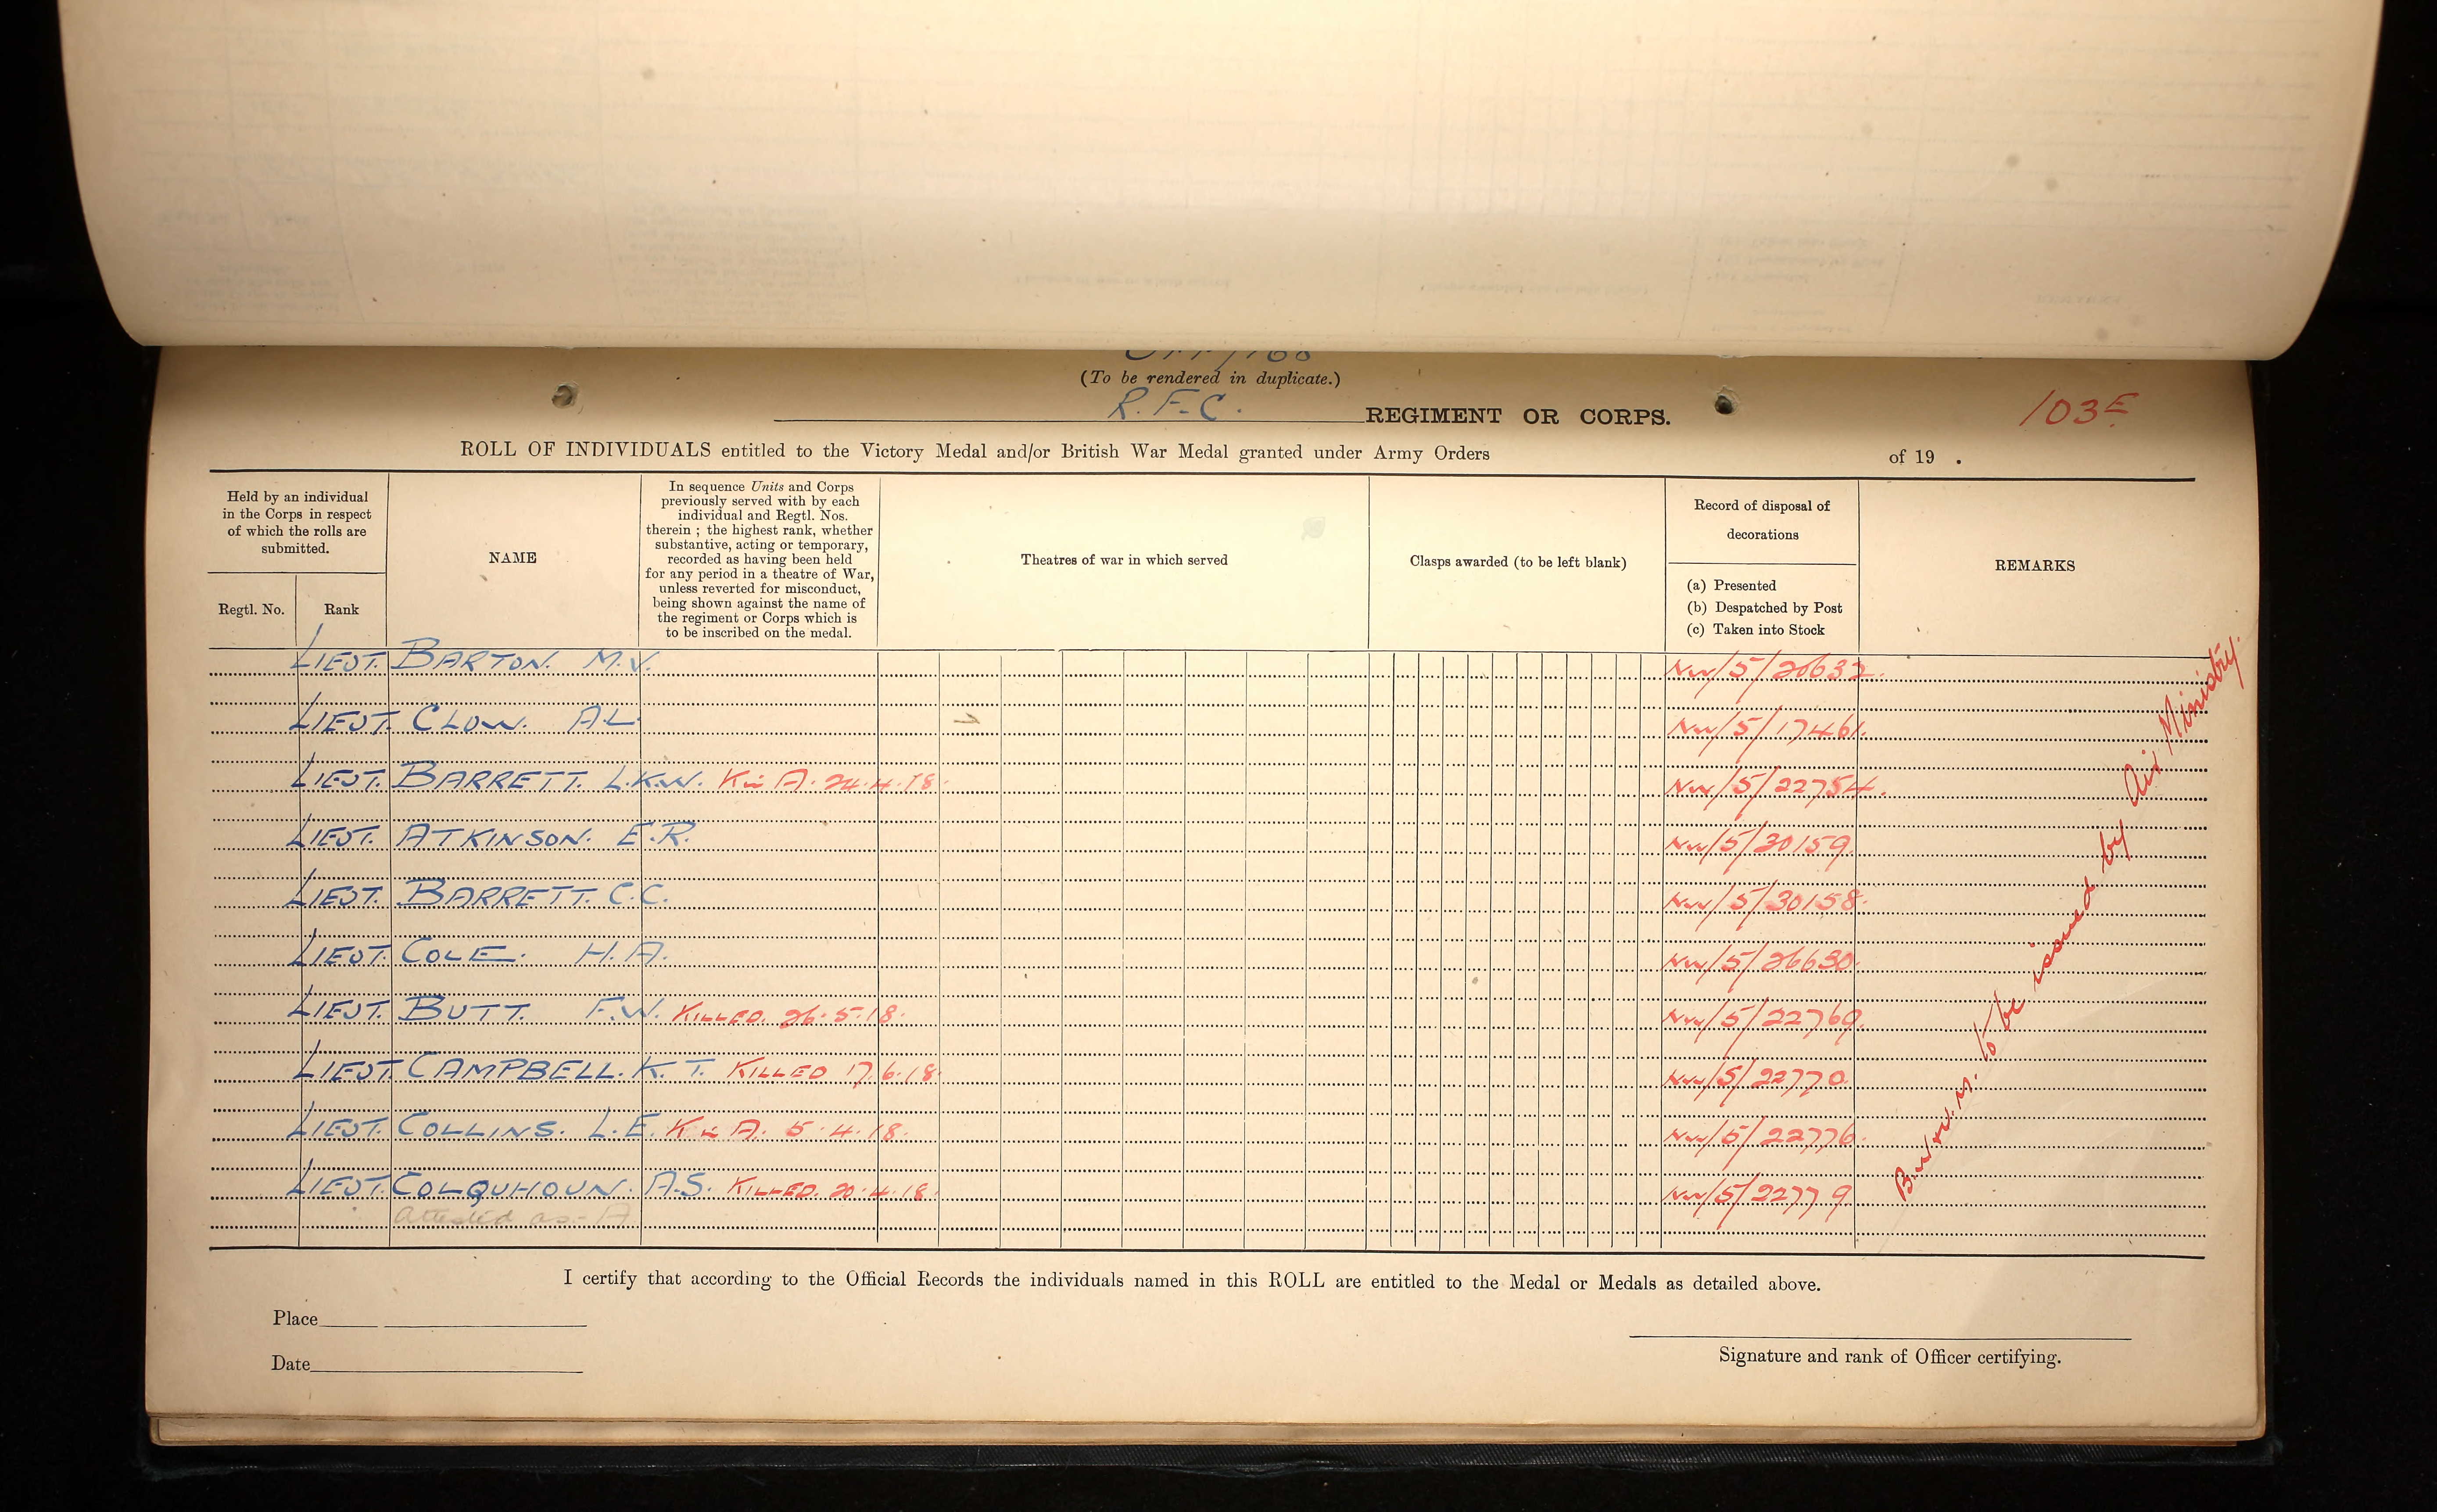 (To be rendered in duplicate.)
R.F.C. REGIMENT OR CORPS. 103E
ROLL OF INDIVIDUALS entitled to the Victory Medal and/or British War Medal granted under Army Orders of 19 .
Held by an individual in the Corps in respect of which the rolls are submitted.
Regtl. No.
Rank
NAME
In sequence Units and Corps
previously served with by each
individual and Regtl. Nos.
therein ; the highest rank, whether
substantive, acting or temporary,
recorded as having been held
for any period in a theatre of War,
unless reverted for misconduct,
being shown against the name of
the regiment or Corps which is
to be inscribed on the medal.
Theatres of war in which served
Clasps awarded (to be left blank)
Record of disposal of
decorations
(a) Presented
(b) Despatched by Post
(c) Taken into Stock
REMARKS
LIEUT. BARTON. M.V. NW/5/20632.
LIEUT. CLOW. A.L. NW/5/17461.
LIEUT. BARRETT. L.K.W. K in A. 24.4.18. NW/5/22754.
LIEUT. ATKINSON. E.R. NW/5/30159.
LIEUT. BARRETT. C.C. NW/5/30158.
LIEUT. COLE. H.A. NW/5/26630.
LIEUT. BUTT. F.W. KILLED. 26.5.18. NW/5/22769.
LIEUT. CAMPBELL. K.T. KILLED 17.6.18. NW/5/22770.
LIEUT. COLLINS. L.E. K in A. 5.4.18. NW/5/22776.
LIEUT. COLQUHOUN. A.S. KILLED. 20.4.18. NW/5/22779
attested as - A
B.W.V.M. to be issued by Air Ministry.
I certify that according to the Official Records the individuals named in this ROLL are entitled to the Medal or Medals as detailed above.
Place
Date
Signature and rank of Officer certifying.